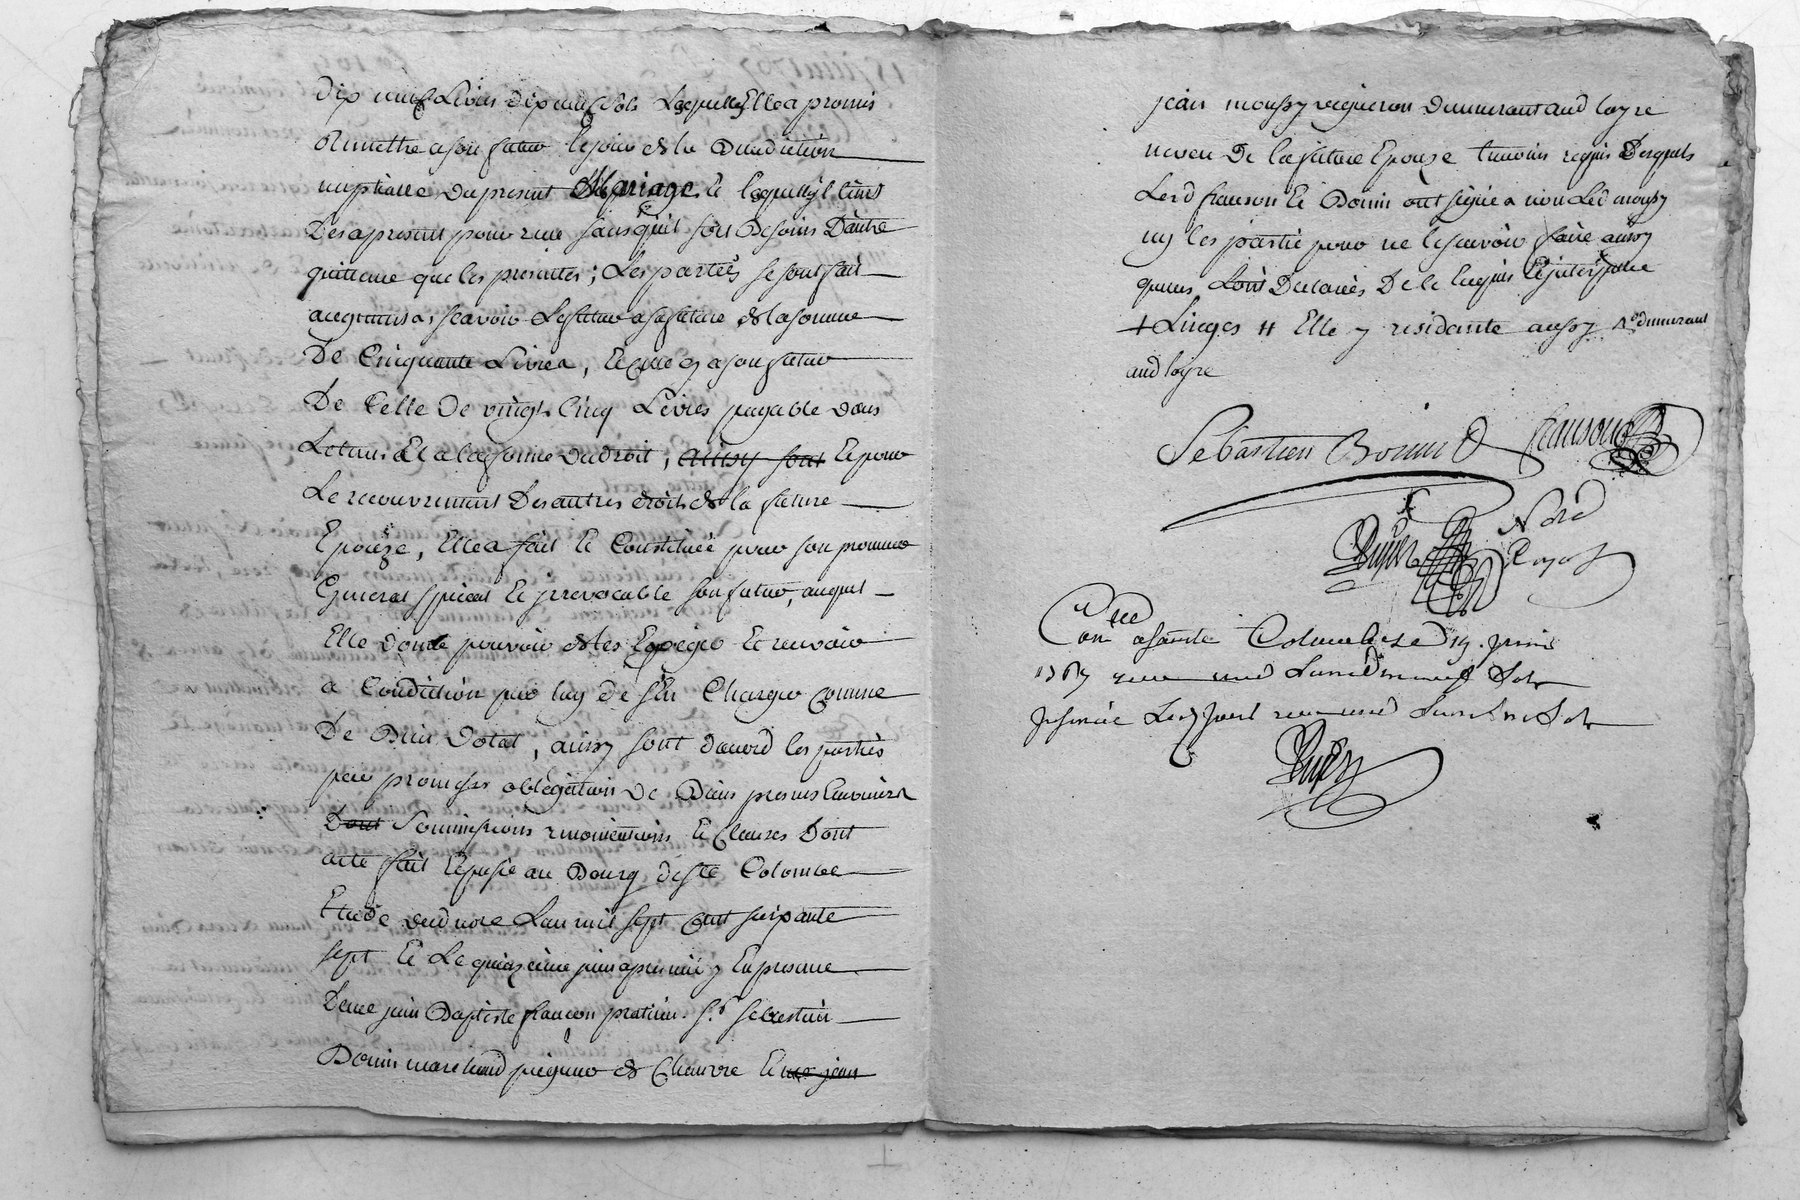 dix neuf Livres dix neuf sols Lesquelles Elle a promis
Remettre a son futur le jour de la Benediction
nuptialle du present Mariage Et lesquelles il tient
Des a present pour sans quil soit Besoins Dautre
quittance que les presentes ; Les parties se sont fait
augments, scavoir Le futur a sa future de la somme
De Cinquante Livres, Et elle a son futur
De Celle De vingt Cinq Livres payable dans
Letems Et a la forme du droit, aussy sont Et pour
Le recouvrement Des autres droits de la future
Epouze, Elle a fait Et Constitué pour son procureur
General special Et irrevocable son futur, auquel
Elle donne pouvoir de les Exiger Et recevoir
a Condition par luy de s'en Charger comme
De Bien Dotal, aussy sont d'accord les parties
par promesses obligation De Biens presens Et avenir
Dont Soumissions renonciations Et Clauses Dont
acte fait Et passé au Bourg de Ste Colombe
Etude dud nore Lan mil sept Cent soixante
sept Et Le quinzieme juin apres midy En presence
De me jean Baptiste françon praticien Sr sebastien
Bonin marchand de Et me jean
jean moussy vigneron demeurant aud loyre
neveu De la future Epouze temoins requis Desquels
Led franson Et Bonin ont signé a non Led moussy
ny les partie pour ne le scavoir faire aussy
quens Lors Declarés De le requis Et interpellé
+ Linges # Elle y residente aussy demeurant
aud loyre
Sebastien Bonin franson
Nore Royal
Con olle a sainte Colombe Le 19 juin
1767
Insinué Led jour